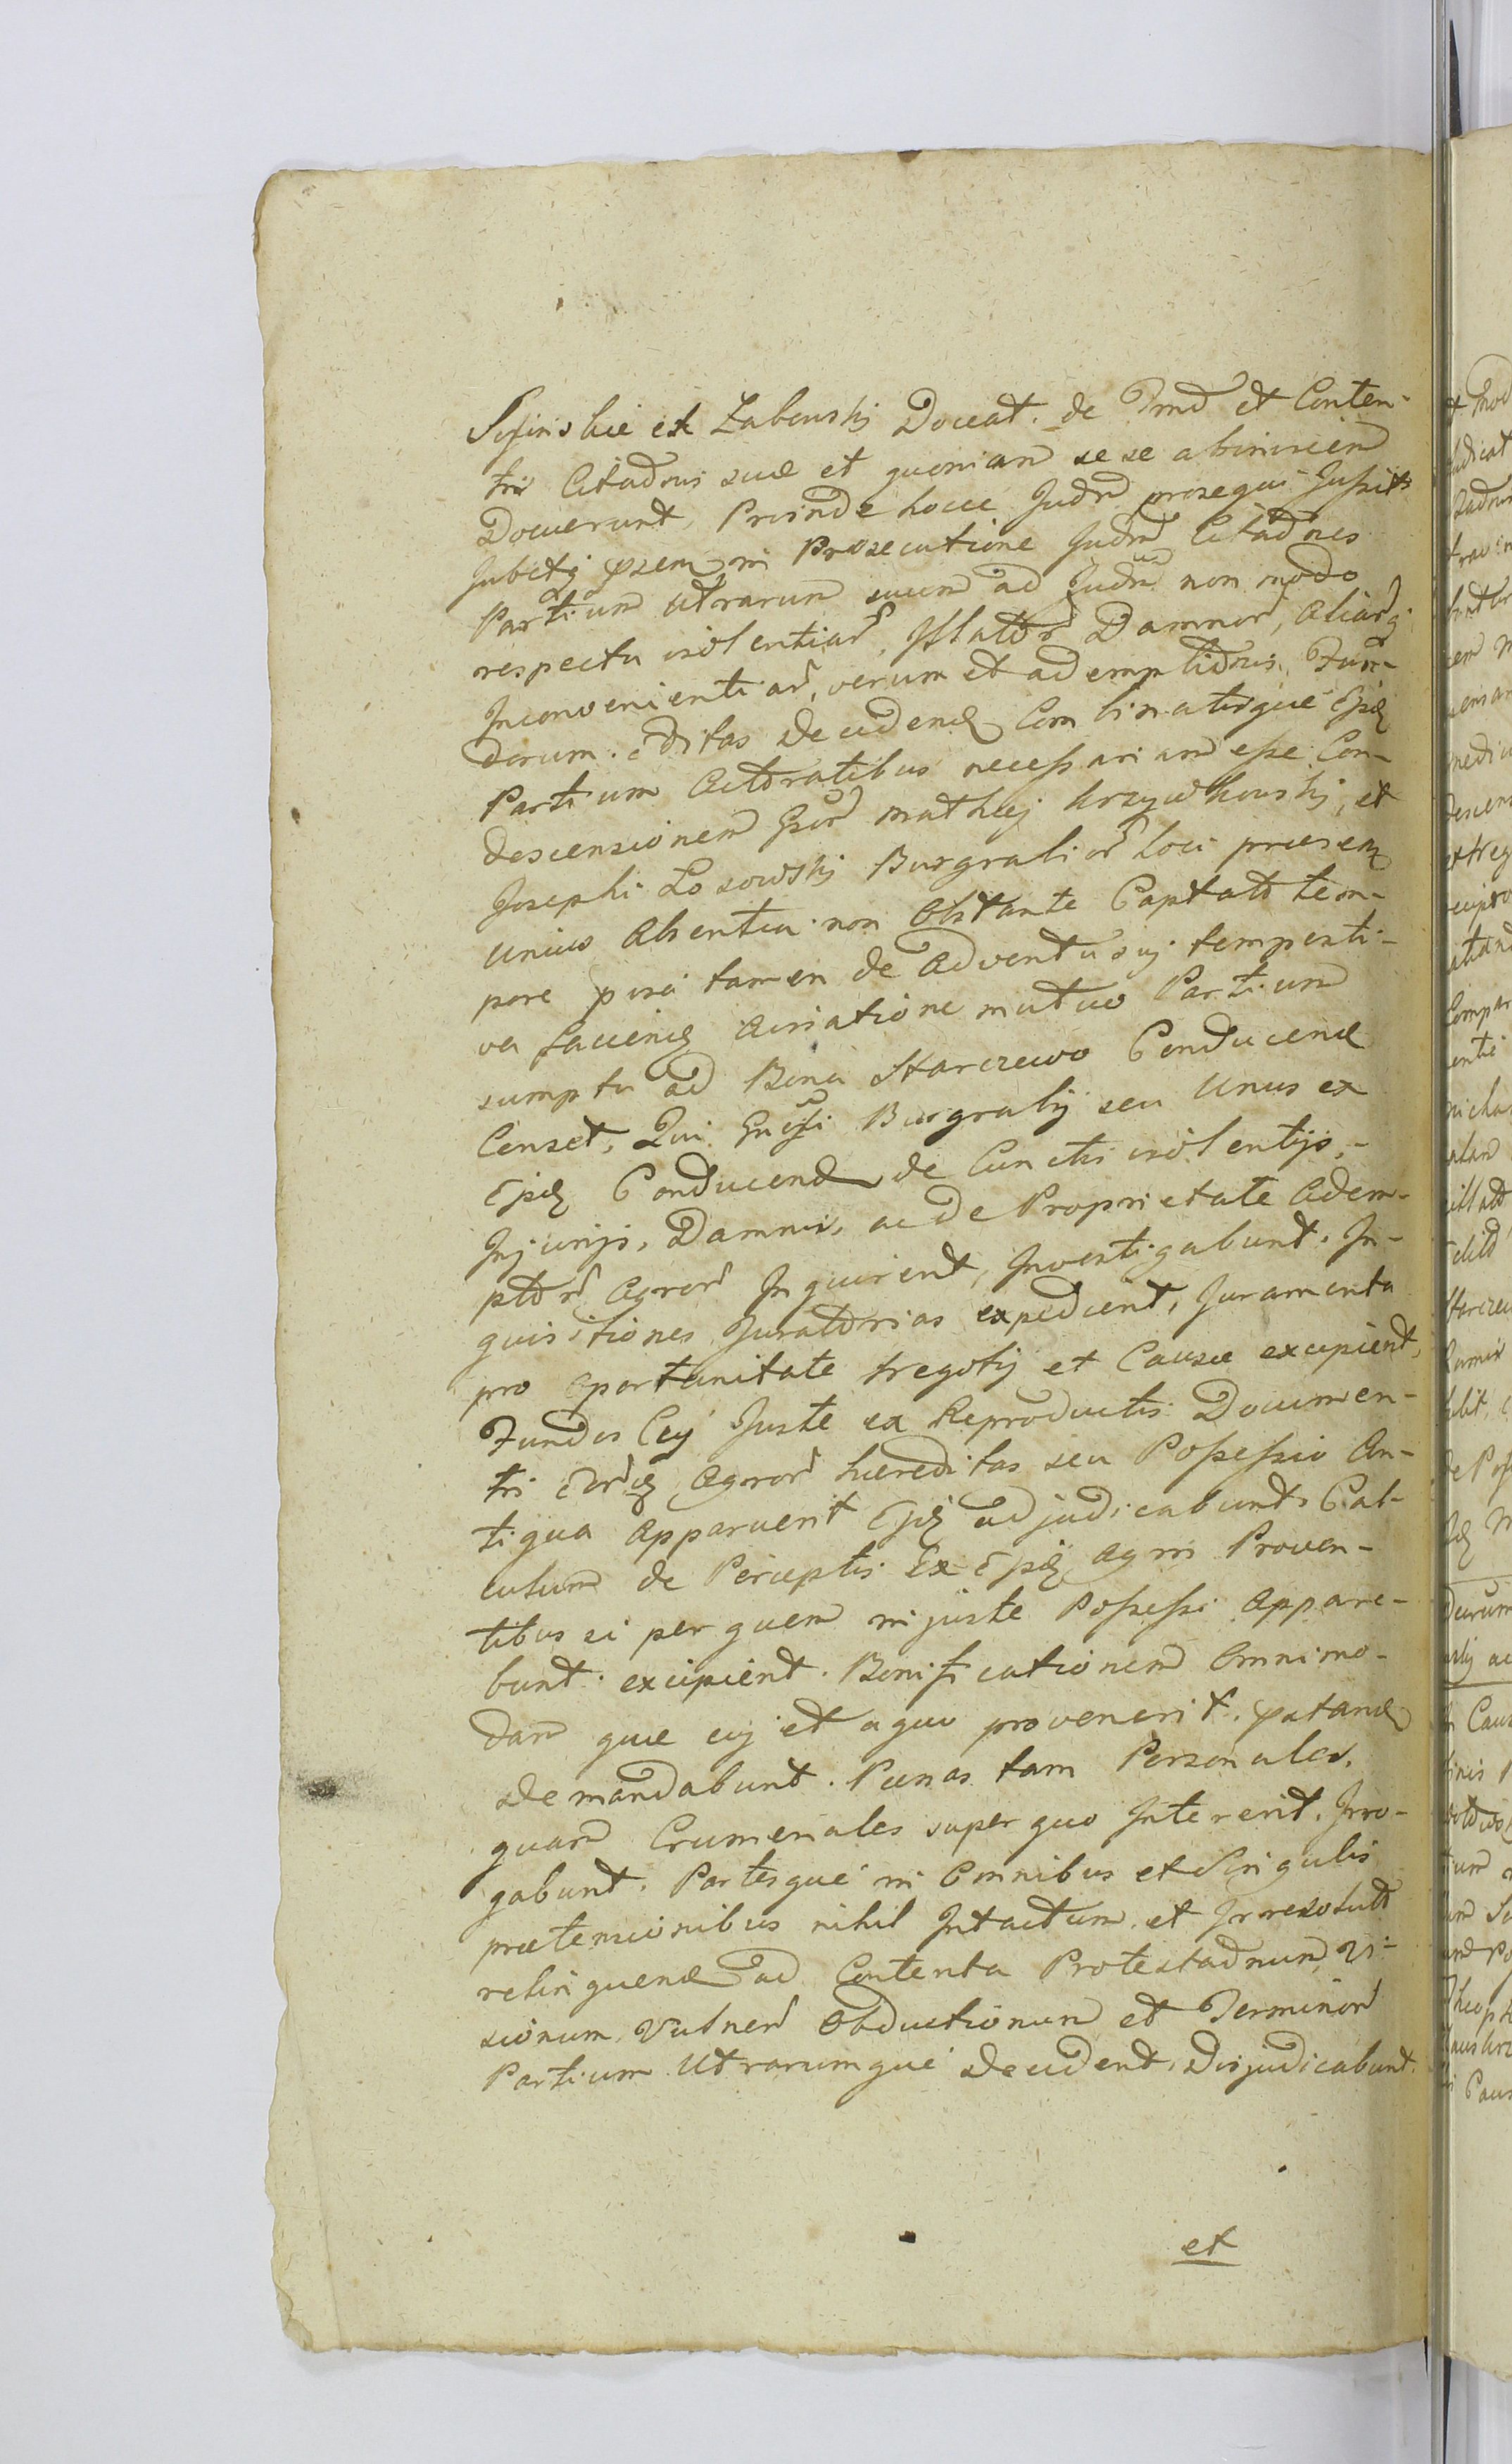 et Zabouski Doceat. de Tmd et Conten-
tis Citaõnis suæ et quoniam sese abinvicem
Docuerunt, Proinde hocce Judm prosequi Jussit
Jubetq in Prosecutione Judm Citaõnes
Partium Utrarum suum ad Judm non modo
respectu violentiar, Illator Damnor, Aliarq
Inconvenientiar, verum et ademptionis Fun-
dorum. Decidend Combinatisque
Partium Actoratibus necessariam esse Con-
descensionem Gsor Mathæj Krzywkouskj, et
Josephi Losowskj Burgrabior loci præsen
Unius Absentia non Obstante Captato tem-
pore tamen de Adventu suj tempesti-
va faciend Aviatione mutuo Partium
sumptu ad Bona Starczewo Conducend
Censet, Qui Burgrabij seu Unus ex
Conducend de Cunctis violentijs,-
Injurijs, Damnis, ac de Proprietate Adem-
ptor Agror Inquirent, Investigabunt. In-
quisitiones Juratorias expedient, Juramenta
pro Oportunitate Negotij et Causæ excipient,
Fundos Cuj Juste ex Reproductis Documen-
tis Agror hæreditas seu Possessio An-
tiqua Apparuerit adjudicabunt, Cal-
culum de Perceptis Ex Agri Proven-
tibus si per quem injuste Possessi Appare-
bunt. excipient. Bonificationem Omnimo-
dam quæ cuj et a quo provenerit.
demandabunt. Pœnas tam Personales,
quam Crumenales super quo Intererit. Irro-
gabunt. Partesque in Omnibus et Singulis
prætensionibus nihil Intactum et Irresolutô
relinquend ad Contenta Protestaõnum, Vi-
sionum, Vulner Obductionum et Terminor
Partium Utrarumque decident, Disjudicabunt.
et